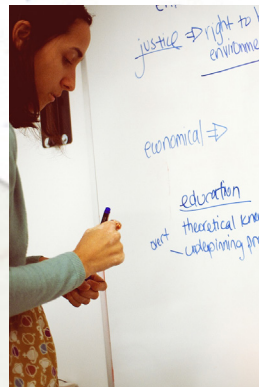 justice ⇒ right to
environme
economical ⇒
education
theoretical know
overt - underpinning pr